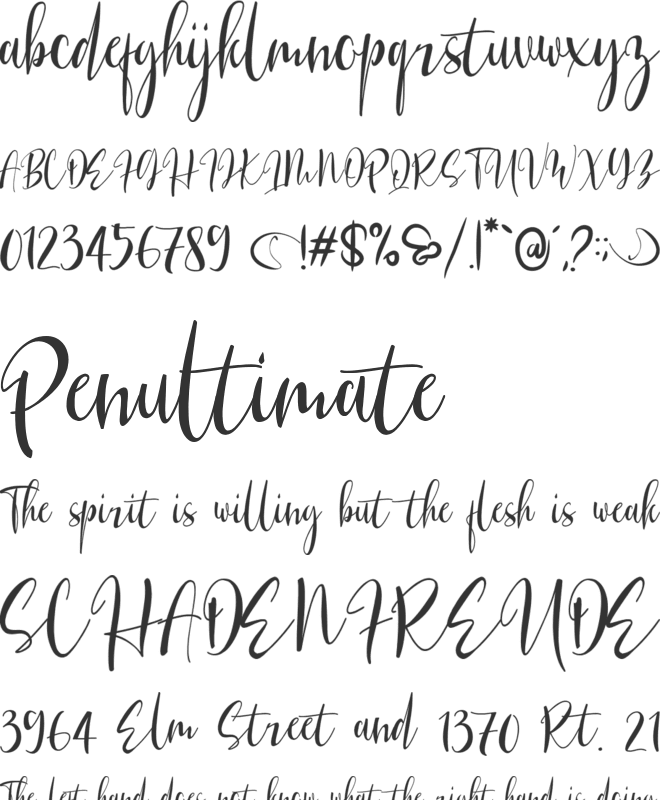 abcdefghijklmnopqrstuvwxyz
ABCDEFGHIJKLMNOPQRSTUVWXYZ
0123456789 (!#$%&/.|*`@´,?:;)
Penultimate
The spirit is willing but the flesh is weak
SCHADENFREUDE
3964 Elm Street and 1370 Rt. 21
The left hand does not know what the right hand is doing